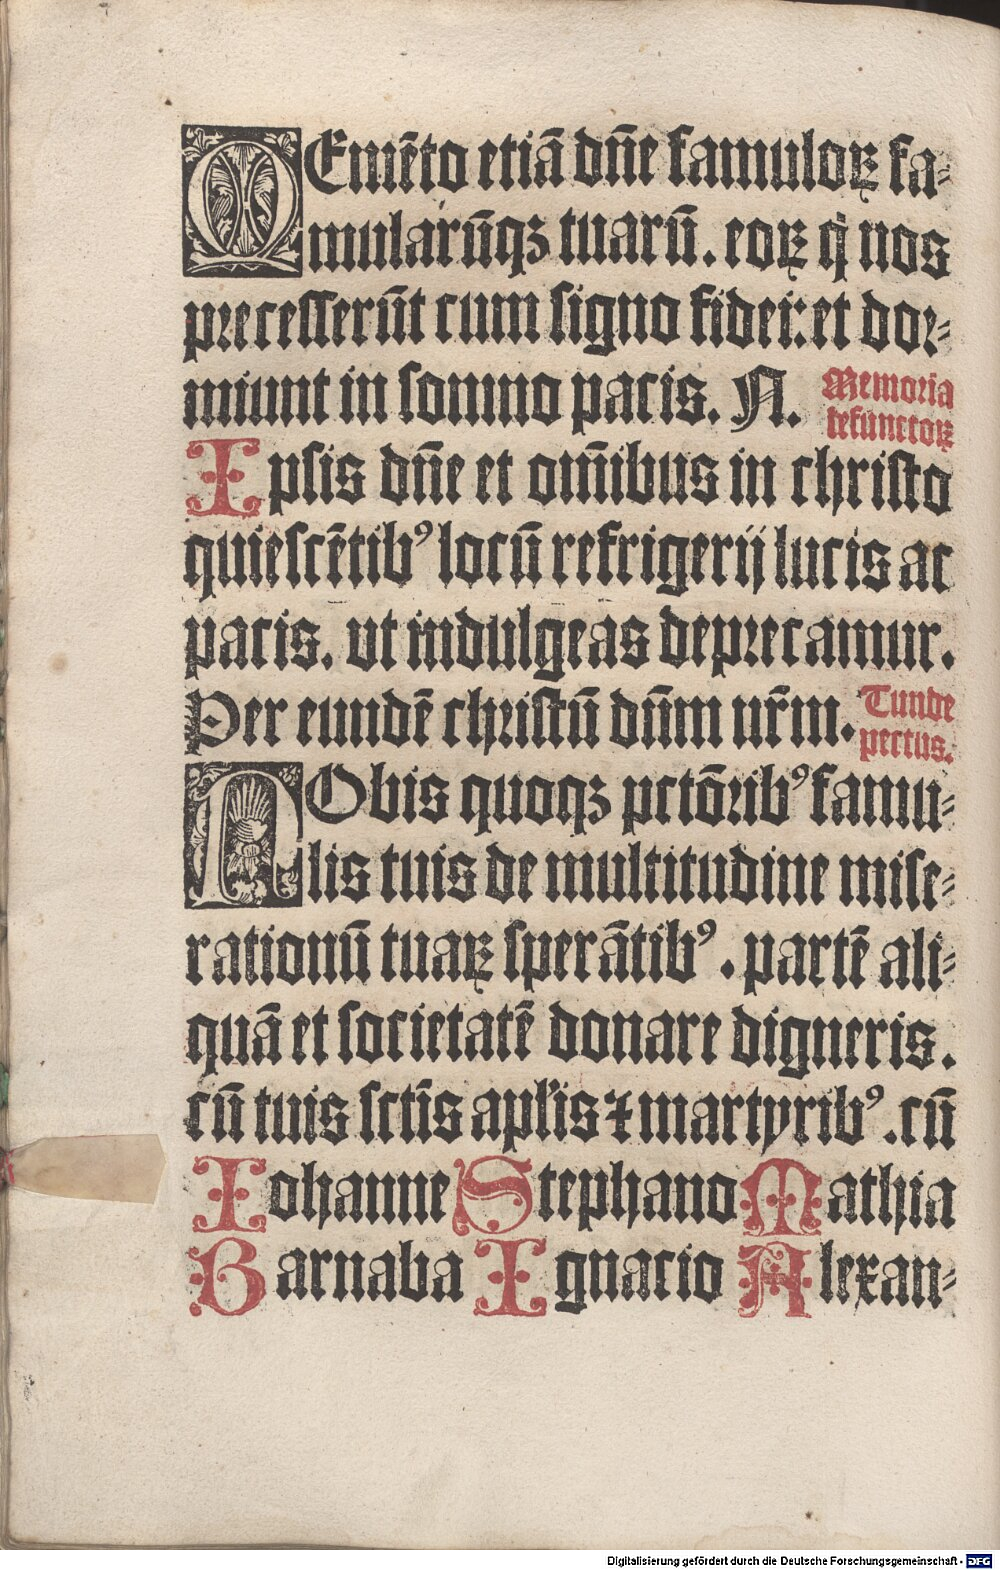 MEmēto etiā dñe famuloꝝ fa⸗
mularūqꝫ tuarū. eoꝝ q̇ nos
precesserūt cum signo fidei: et dor⸗
miunt in somno pacis. N. Memoria
defunctoꝝ
Ipsis dñe et om̄ibus in christo
quiescētibꝰ locū refrigerij lucis ac
pacis. vt indulgeas deprecamur.
Per eundē christū dn̄m nr̄m. Tunde
pectus.
NObis quoqꝫ pctōribꝰ famu⸗
lis tuis de multitudine mise⸗
rationū tuaꝝ sperātibꝰ. partē ali⸗
quā et societatē donare digneris.
cū tuis sctīs apl'is ⁊ martyribꝰ. cū
Iohanne Stephano Mathia
Barnaba Ignacio Alexan⸗
Digitalisierung gefördert durch die Deutsche Forschungsgemeinschaft - DFG